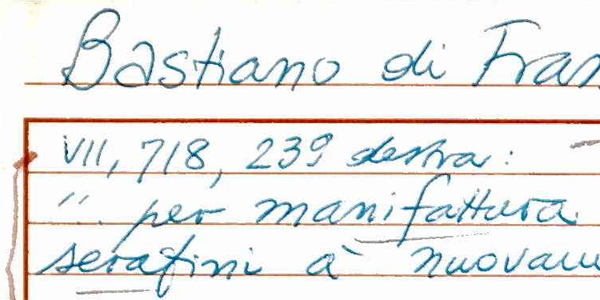 Bastiano di Fran
VII, 718, 239 destra:
"... per manifattura
serafini à nuovam